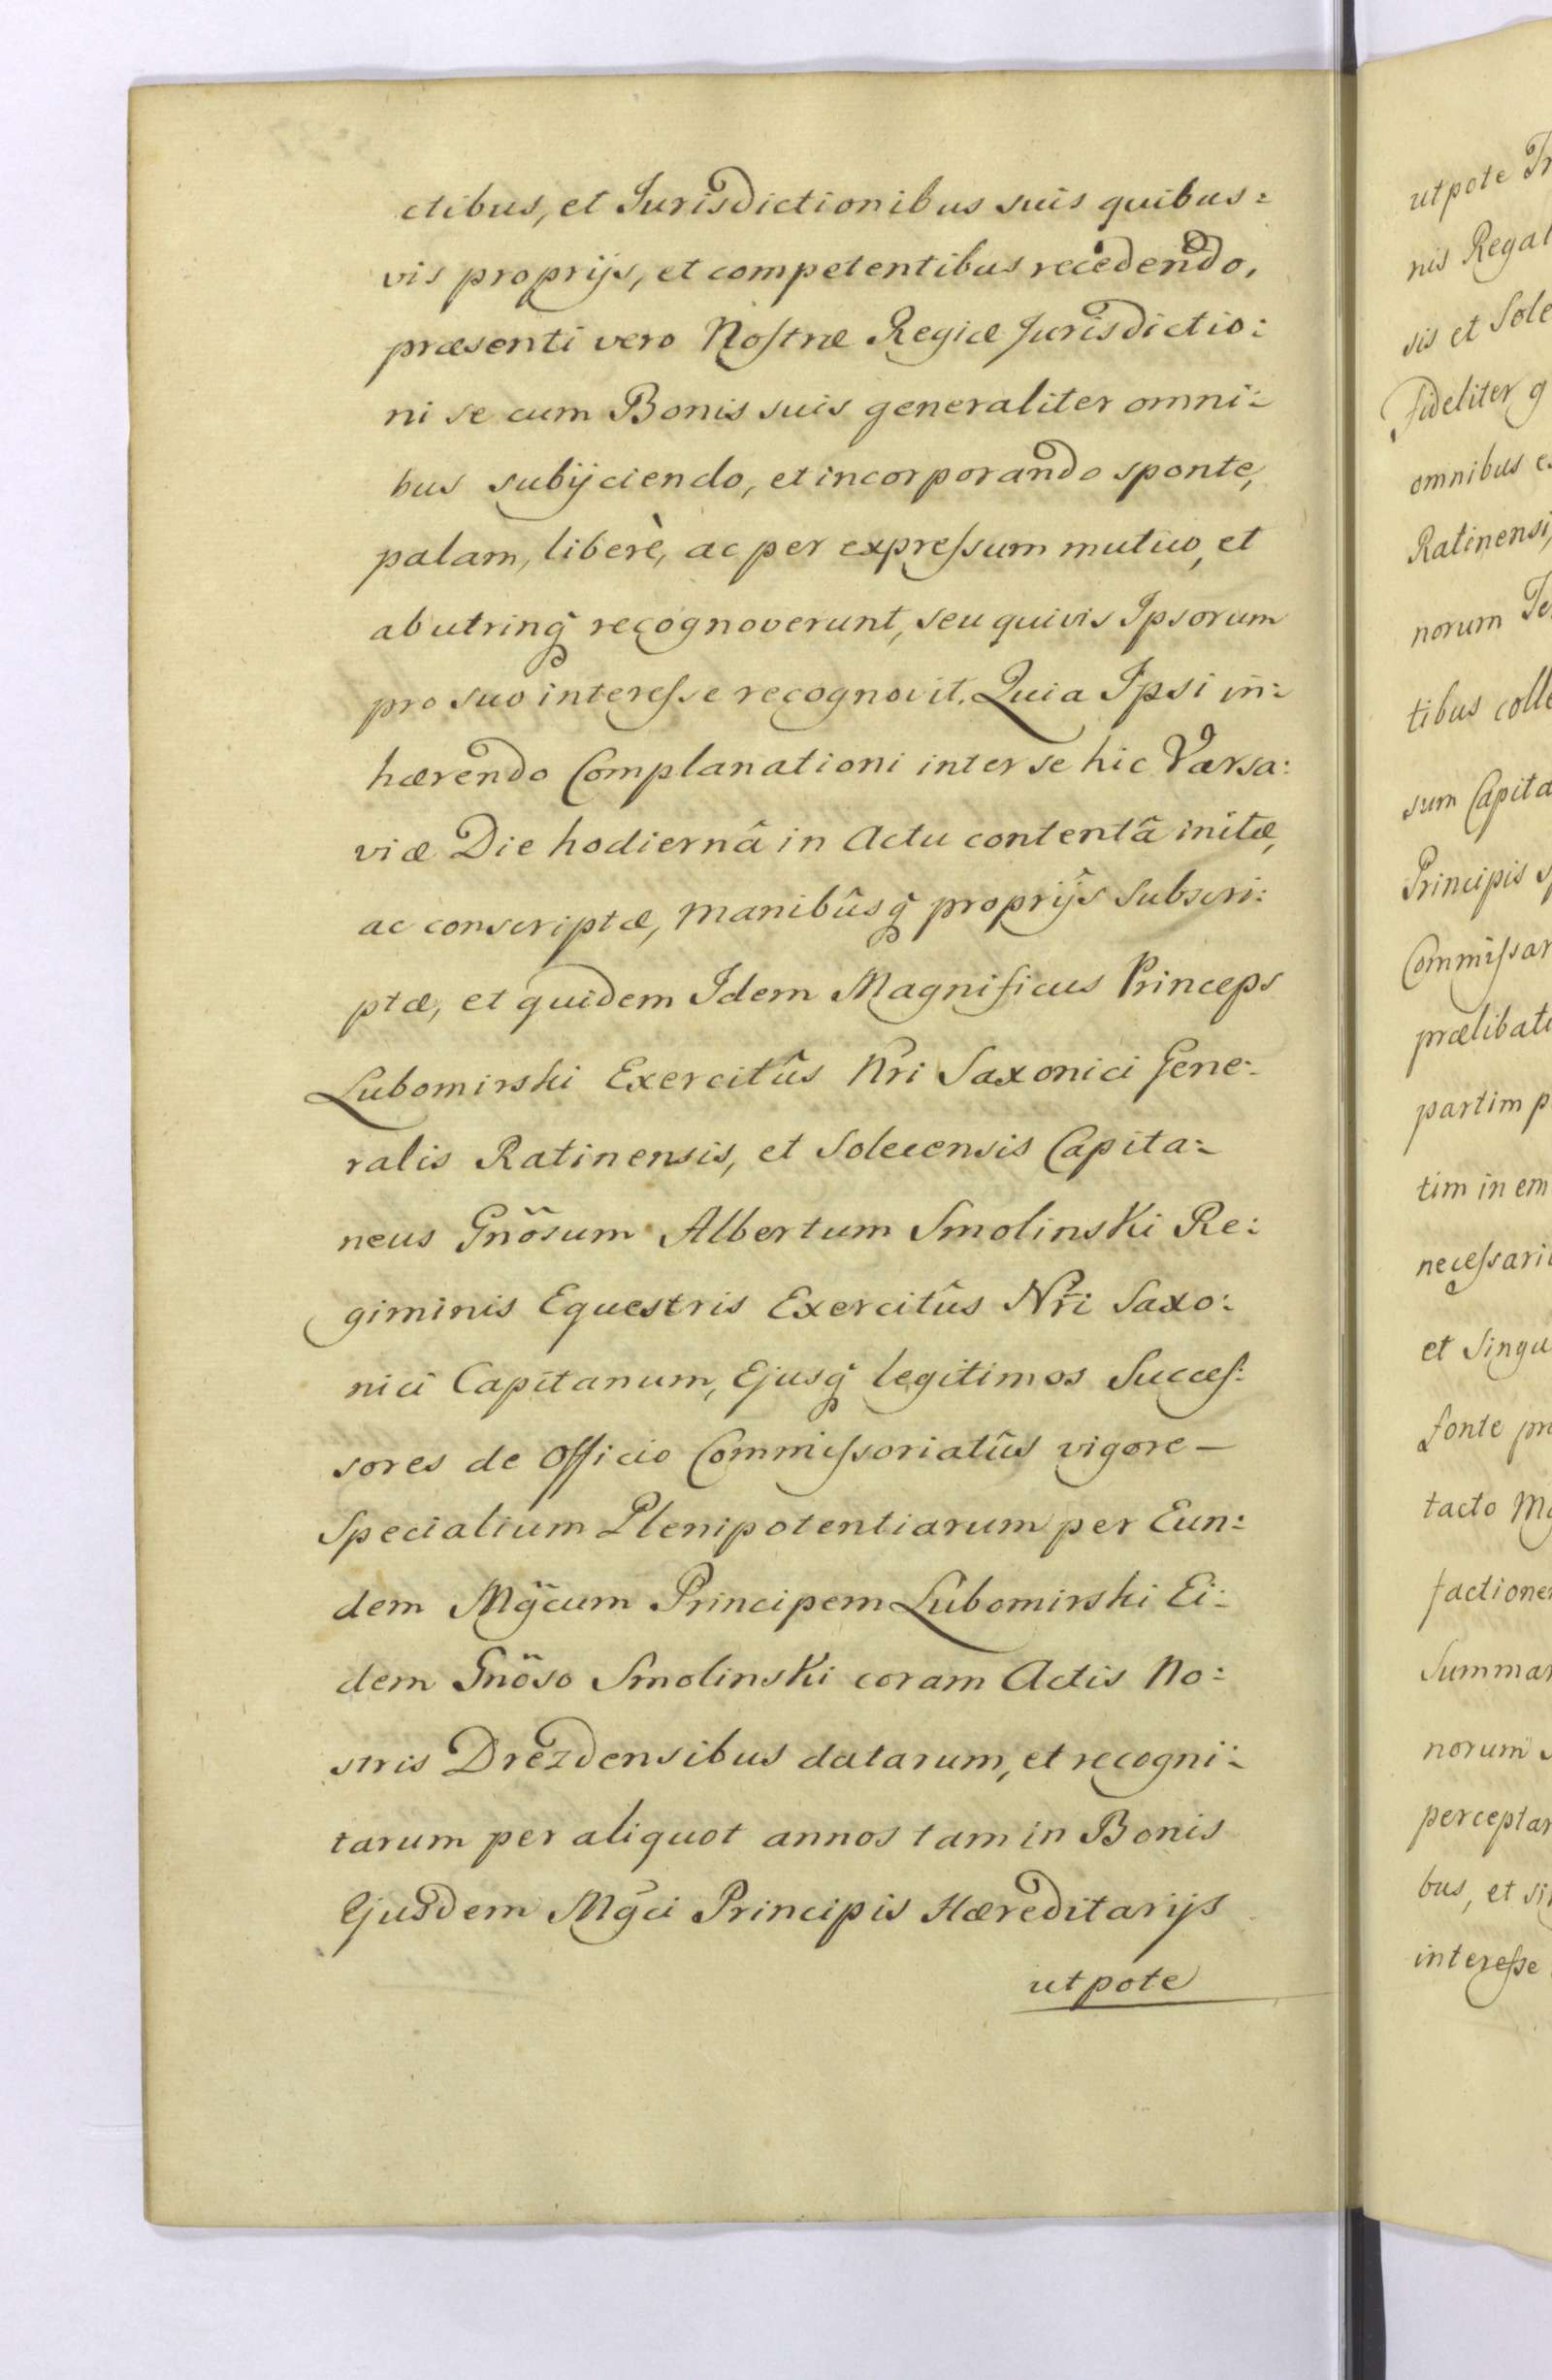 ctibus, et Jurisdictionibus suis quibus=
vis proprijs, et competentibus recedendo,
præsenti vero Noſtræ Regiæ Jurisdictio=
ni se cum Bonis suis generaliter omni=
bus subijciendo, et incorporando sponte,
palam, liberè, ac per expreſsum mutuo, et
ab utrinq̃ recognoverunt, seu quivis Ipsorum
pro suo intereſse recognovit. Quia Ipsi in=
hærendo Complanationi inter se hic Varsa=
viæ Die hodiernâ in Actu contentâ initæ,
ac conscriptæ, manibûsq̃ proprijs subscri=
ptæ, et quidem Idem Magnificus Princeps
Lubomirski Exercitûs Nr̃i Saxonici Gene=
ralis Ratinensis, et Solecensis Capita=
neus Gnõsum Albertum Smolinski Re=
giminis Equestris Exercitûs Nr̃i Saxo=
nici Capitanum, Ejusq̃ legitimos Succeſ=
sores de Officio Commiſsoriatûs vigore –
Specialium Plenipotentiarum per Eun=
dem Mgc̃um Principem Lubomirski Ei=
dem Gnõso Smolinski coram Actis No=
stris Drezdensibus datarum, et recogni=
tarum per aliquot annos tam in Bonis
Ejusdem Mgc̃i Principis Hæreditarijs
utpote
utpote
nis Regal
sis et Sole
Fideliter g
omnibus
Ratinensi,
norum
tibus colle
sum Capita
Principis
Commiſsar
prælibat
partim p
tim in em
neceſsari
et Singu
fonte
tacto
factione
Summar
norum
perceptar
bus, et
intereſse